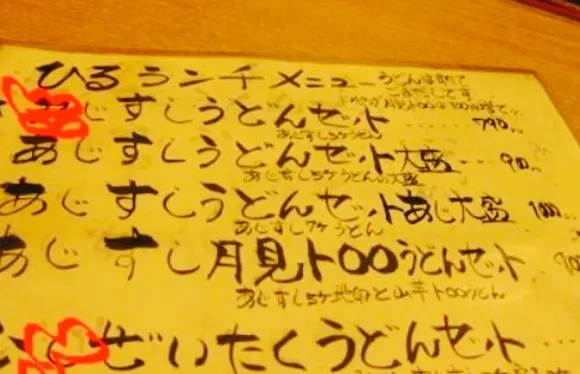 ひるランチメニュー
うどんは全て
じすしうどんセット ‥‥ 790
あじすし5ケうどん
あじすしうどんセット大盛 ‥‥ 9
あじすし5ケうどん大盛
あじすしうどんセットあじ大盛 1000
あじすし7ケうどん
あじすし月見トロロうどんセット
あじすし5ケ地卵と山芋トロロうどん
ぜいたくうどんセット